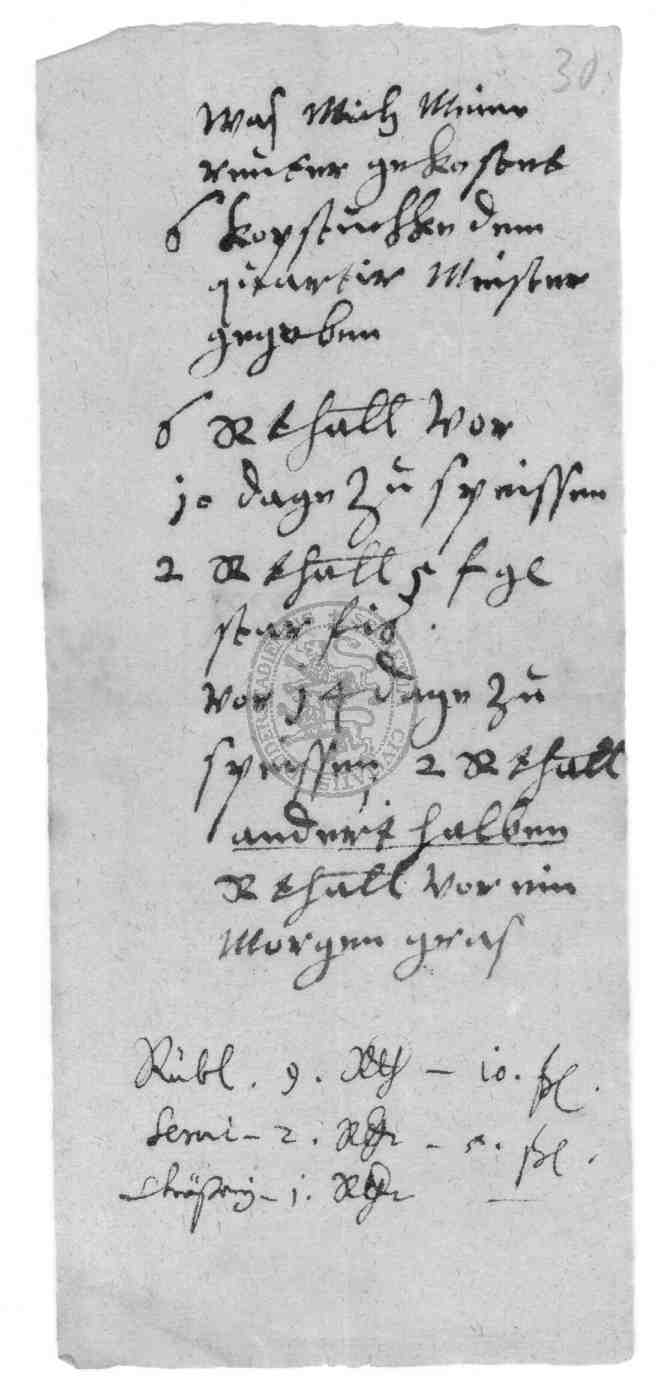 30.
Waß Mich Meine
reuter gekostet
6 kopstuckke dem
quartir Meister
gegeben
6 R thall Vor
10 dage zu speissen
2 R thall 5 sgl
vor 14 dage zu
speissen 2 R thall
andert halben
R thall Vor ein
Morgen gras
Rübl. 9. Rth – 10. ßl.
Servi – 2. Rthr – 5. ßl.
– 1. Rthr